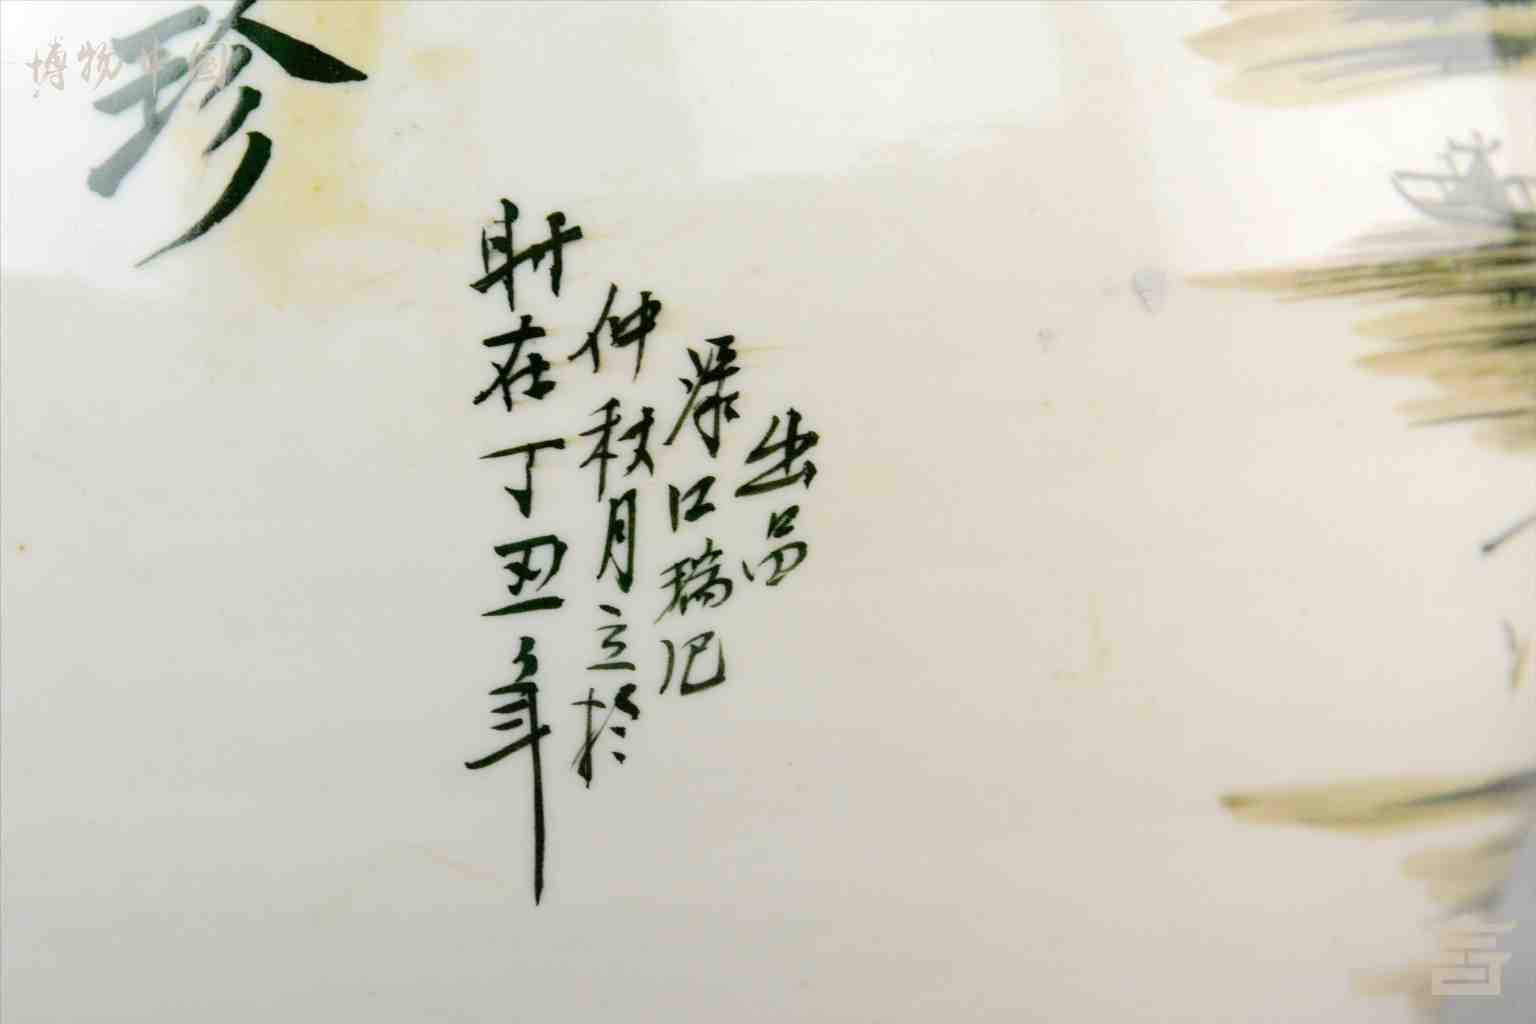 博物中国
珍
时在丁丑年
仲秋月立於
深口瑞记
出品